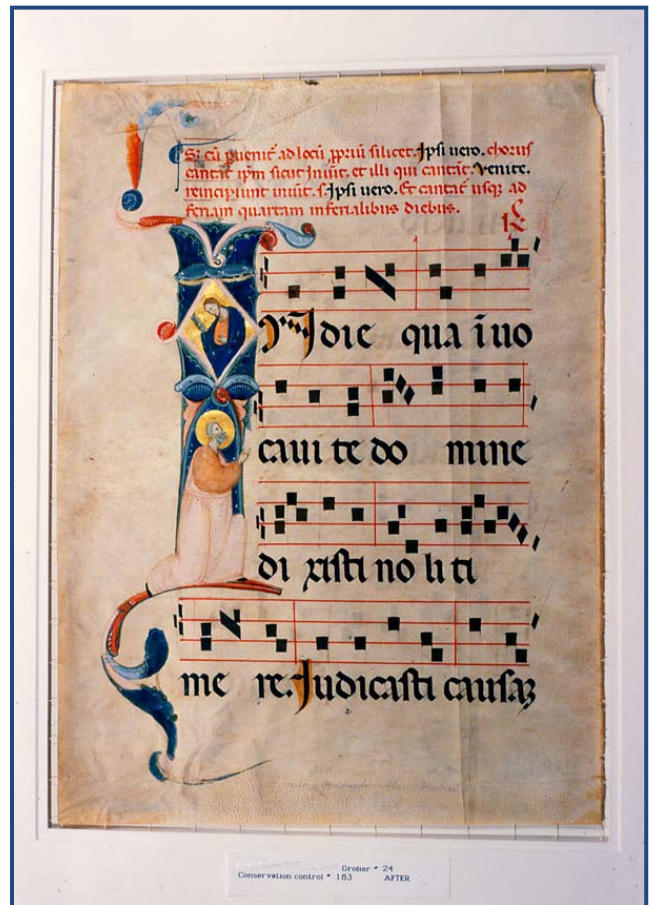 Si cū ꝑuenit̄ ad locū ꝓpriū silicet. Ipsi uero. chorus
cantat̄ ip̄m sicut Inuit̄. et illi qui cantāt. Venite.
reincipiunt inuit̄. s. Ipsi uero. Et cantat̄ usqꝫ ad
feriam quartam in ferialibus diebus.
℟
In die qua īuo
caui te do mine
di xisti no li ti
me re. Iudicasti causaꝫ
Grolier * 24
Conservation control * 183 AFTER